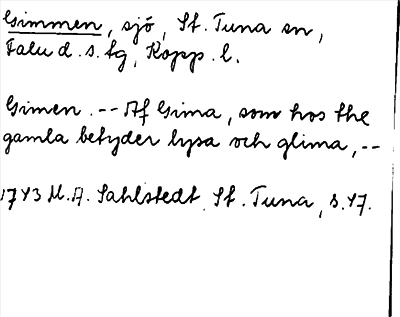 Gimmen, sjö, St. Tuna sn,
Falu d. s. fg, Kopp. l.
Gimen. -- Af Gima, som hos the
gamla betyder lysa och glima, --
1743 M. A. Sahlstedt St. Tuna, s. 47.